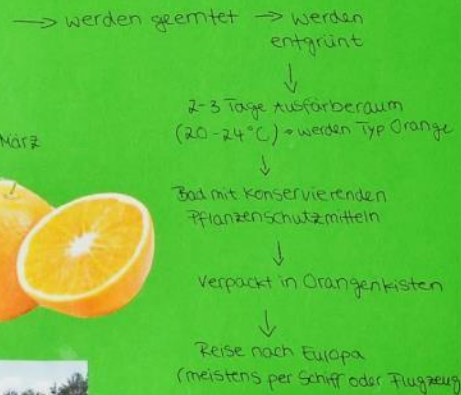 → werden geerntet → werden
entgrünt
↓
2-3 Tage Ausfärberaum
(20-24°C) → werden Typ Orange
↓
März
Bad mit konservierenden
Pflanzenschutzmitteln
↓
verpackt in Orangenkisten
↓
Reise nach Europa
(meistens per Schiff oder Flugzeug